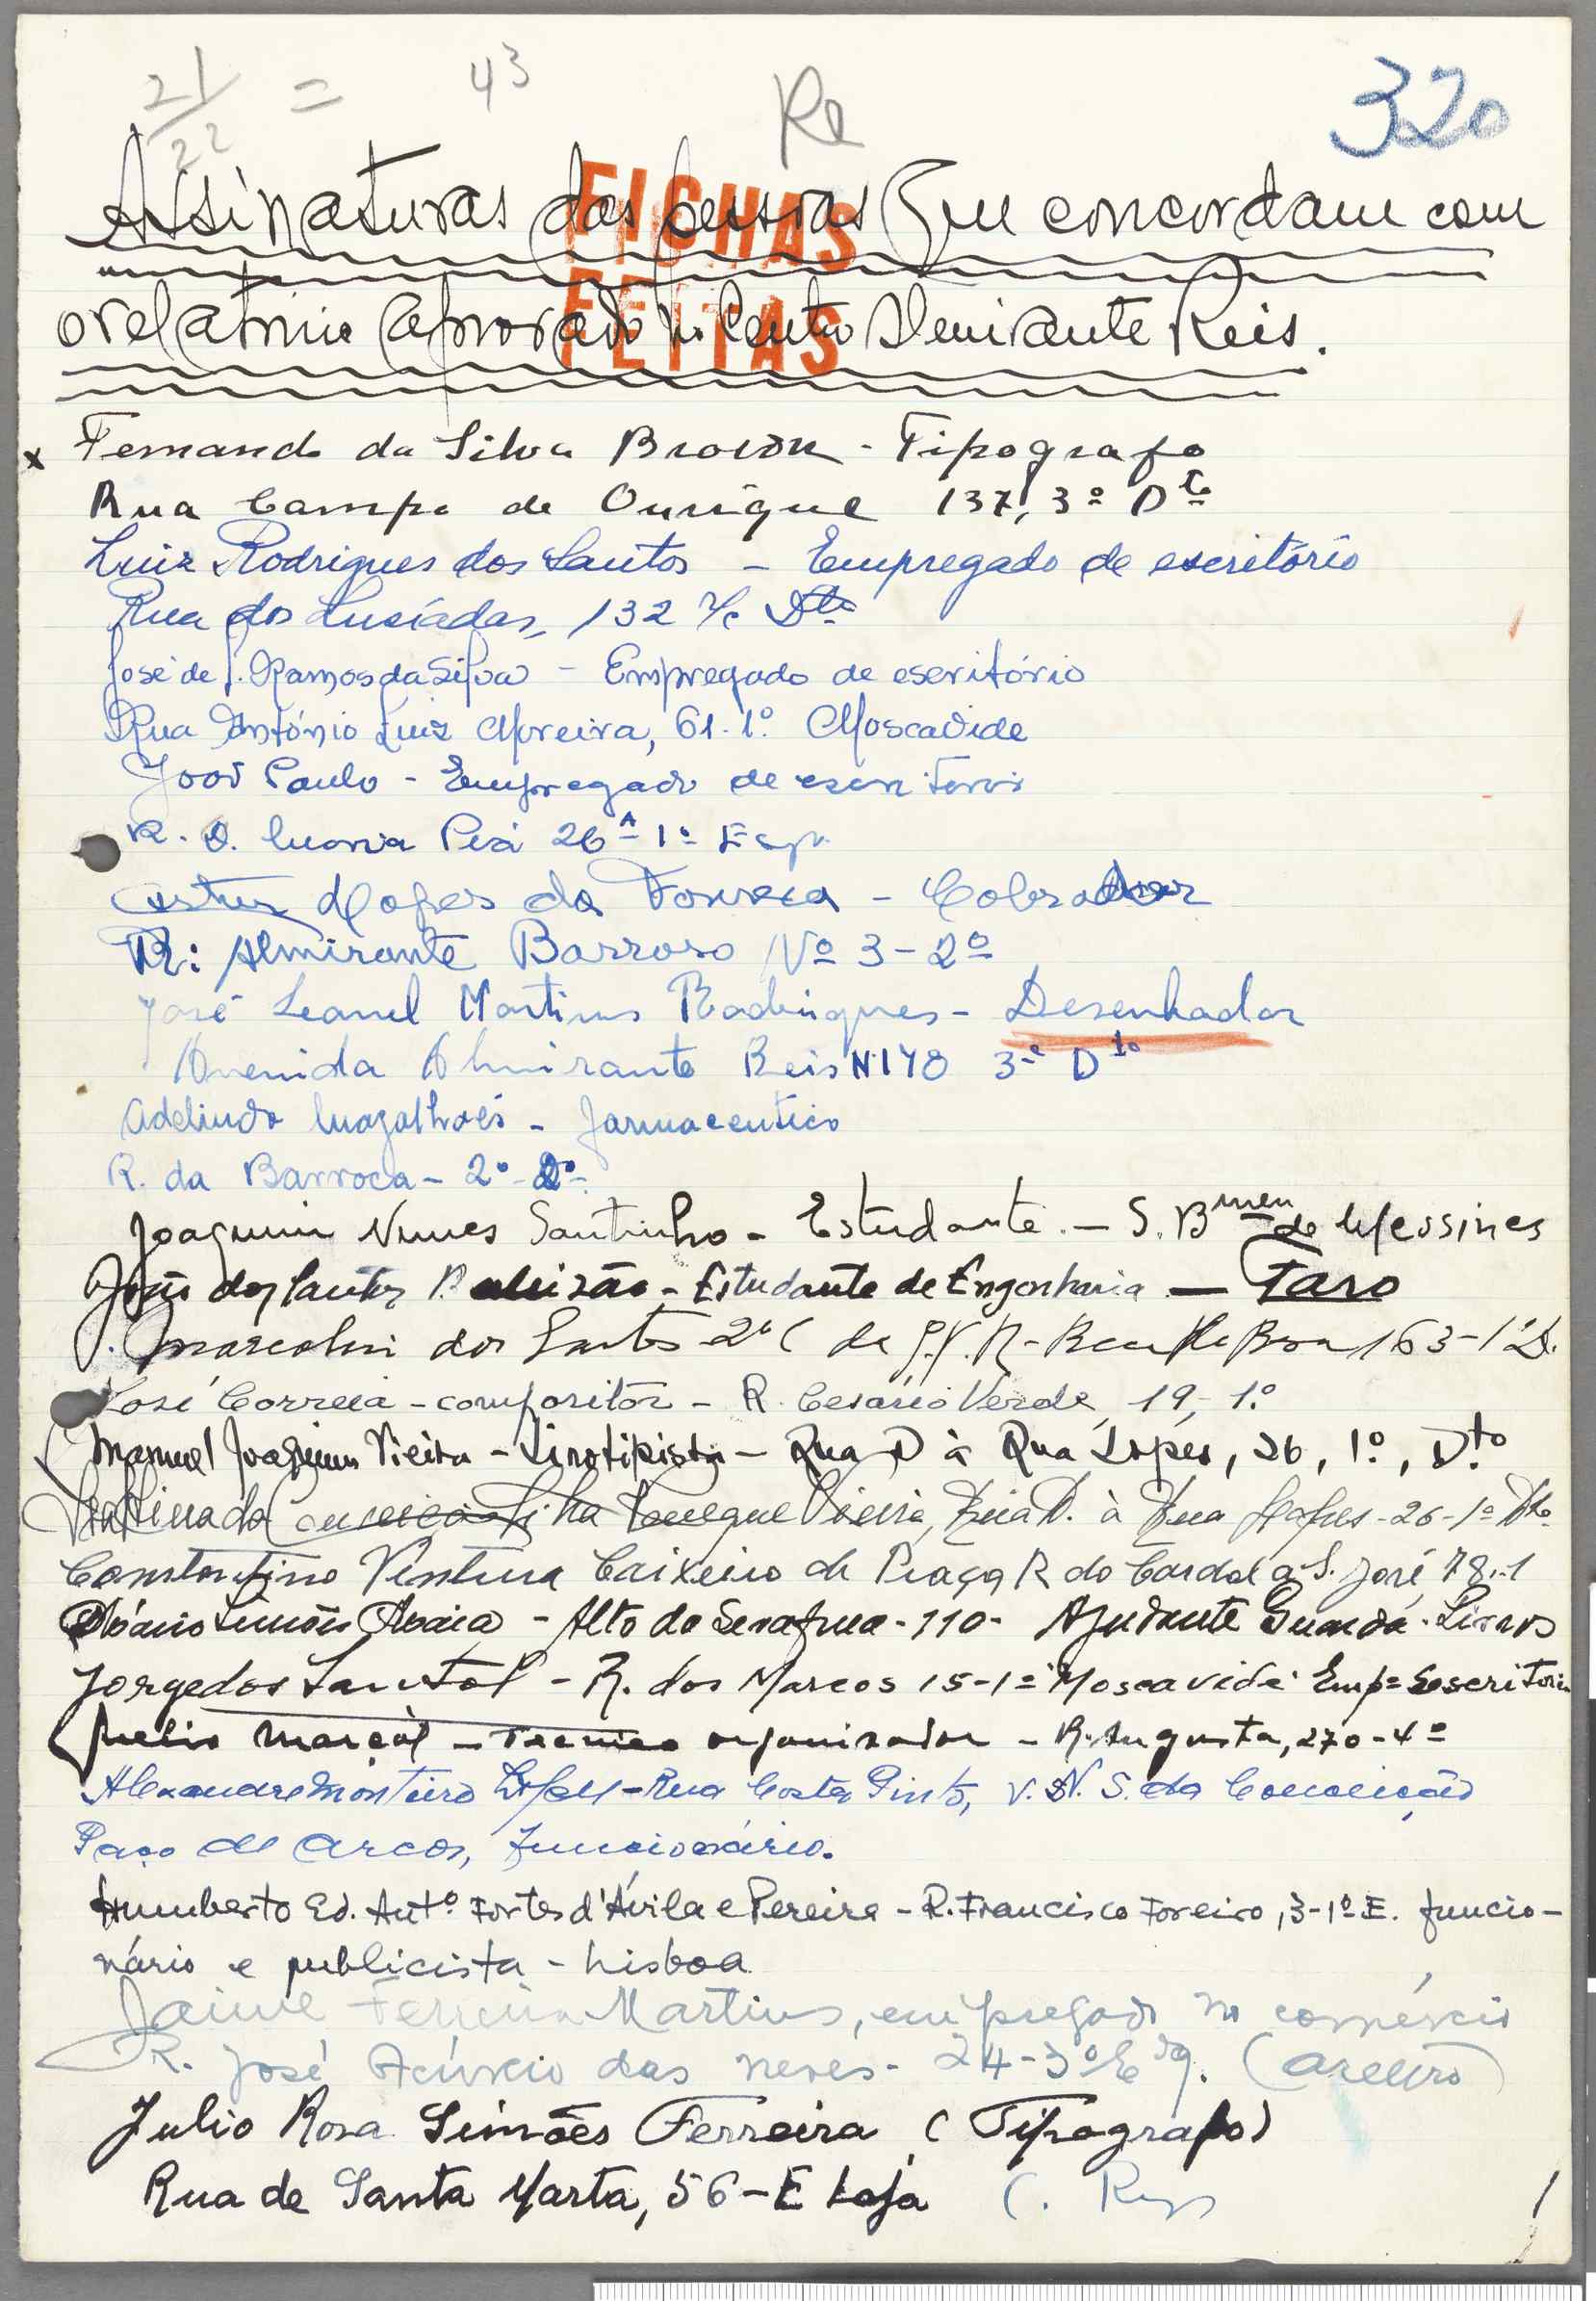 21/22 = 43 Re 320
Assinaturas das pessoas que concordam com
FICHAS
FEITAS
o relatorio aprovado no Centro Almirante Reis.
x Fernando da Silva Brown - Tipografo
Rua Campo de Ourique 137, 3º Dto
Luiz Rodrigues dos Santos - Empregado de escritório
Rua dos Lusíadas, 132 r/c Dto
José de J. Ramos da Silva - Empregado de escritório
Rua António Luiz Moreira, 61-1º. Moscavide
João Paulo - Empregado de escritorio
R. D. Maria Pia 26A 1º Esq.
Artur Lopes da Fonseca - Cobrador
R: Almirante Barroso Nº 3-2º
José Leonel Martins Rodrigues - Desenhador
Avenida Almirante Reis Nº 178 3º Dto
Adelindo Magalhães - farmaceutico
R. da Barroca - 2º - 2º
Joaquim Nunes Santinho - Estudante - S. Bmeu de Messines
João dos Santos - Estudante de Engenharia - Faro
J. Marcolino dos Santos 2º C da G.N.R - 163-1º D.
José Correia - compositor - R. Cesário Verde, 19, 1º
Manuel Joaquim Vieira - Linotipista - Rua D à Rua Lopes, 26, 1º, Dto
da Conceição Silha Vieira, Rua D. à Rua Lopes - 26-1º Dto
Constantino Ventura Caixeiro de Praça R do Cardal a S. José, 78,-1
Simões - Alto da Serafina - 110 - Ajudante Guarda-Livros
Jorge dos Santos - R. dos Marcos 15-1º Moscavide Empº Escritorio
Julio Marçal - Tecnico organizador - R. Augusta, 270-4º
Alexandre Monteiro Lopes - Rua Costa Pinto, V. N. S. da Conceição
Paço de Arcos, funcionário.
Humberto Ed. Antº. Fortes d'Ávila e Pereira - R. Francisco Foreiro, 3-1º E. funcio-
nário e publicista - Lisboa
Jaime Ferreira Martins, empregado no comércio
R. José Acúrcio das Neves - 24-3º Esq. (Areeiro)
Julio Rosa Simões Ferreira (Tipografo)
Rua de Santa Marta, 56-E Loja